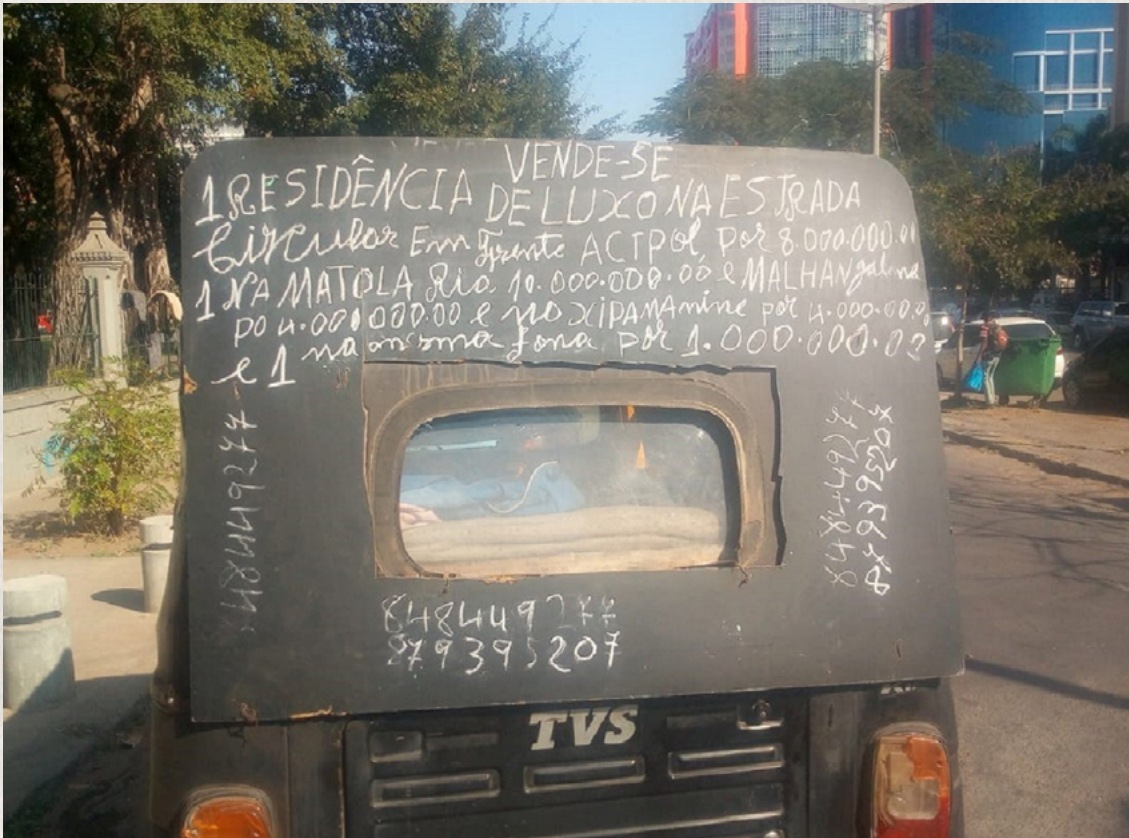 VENDE-SE
1 RESIDÊNCIA DE LUXO NA ESTRADA
Circular Em Frente ACIPOL POR 8.000.000.00
1 NA MATOLA Rio 10.000.000.00 e MALHANgalene
po 4.000.000.00 e no XIPAMAnine por 4.000.000.00
e 1 na mesma zona por 1.000.000.03
848449277
848449277
879395207
848449277
879395207
TVS